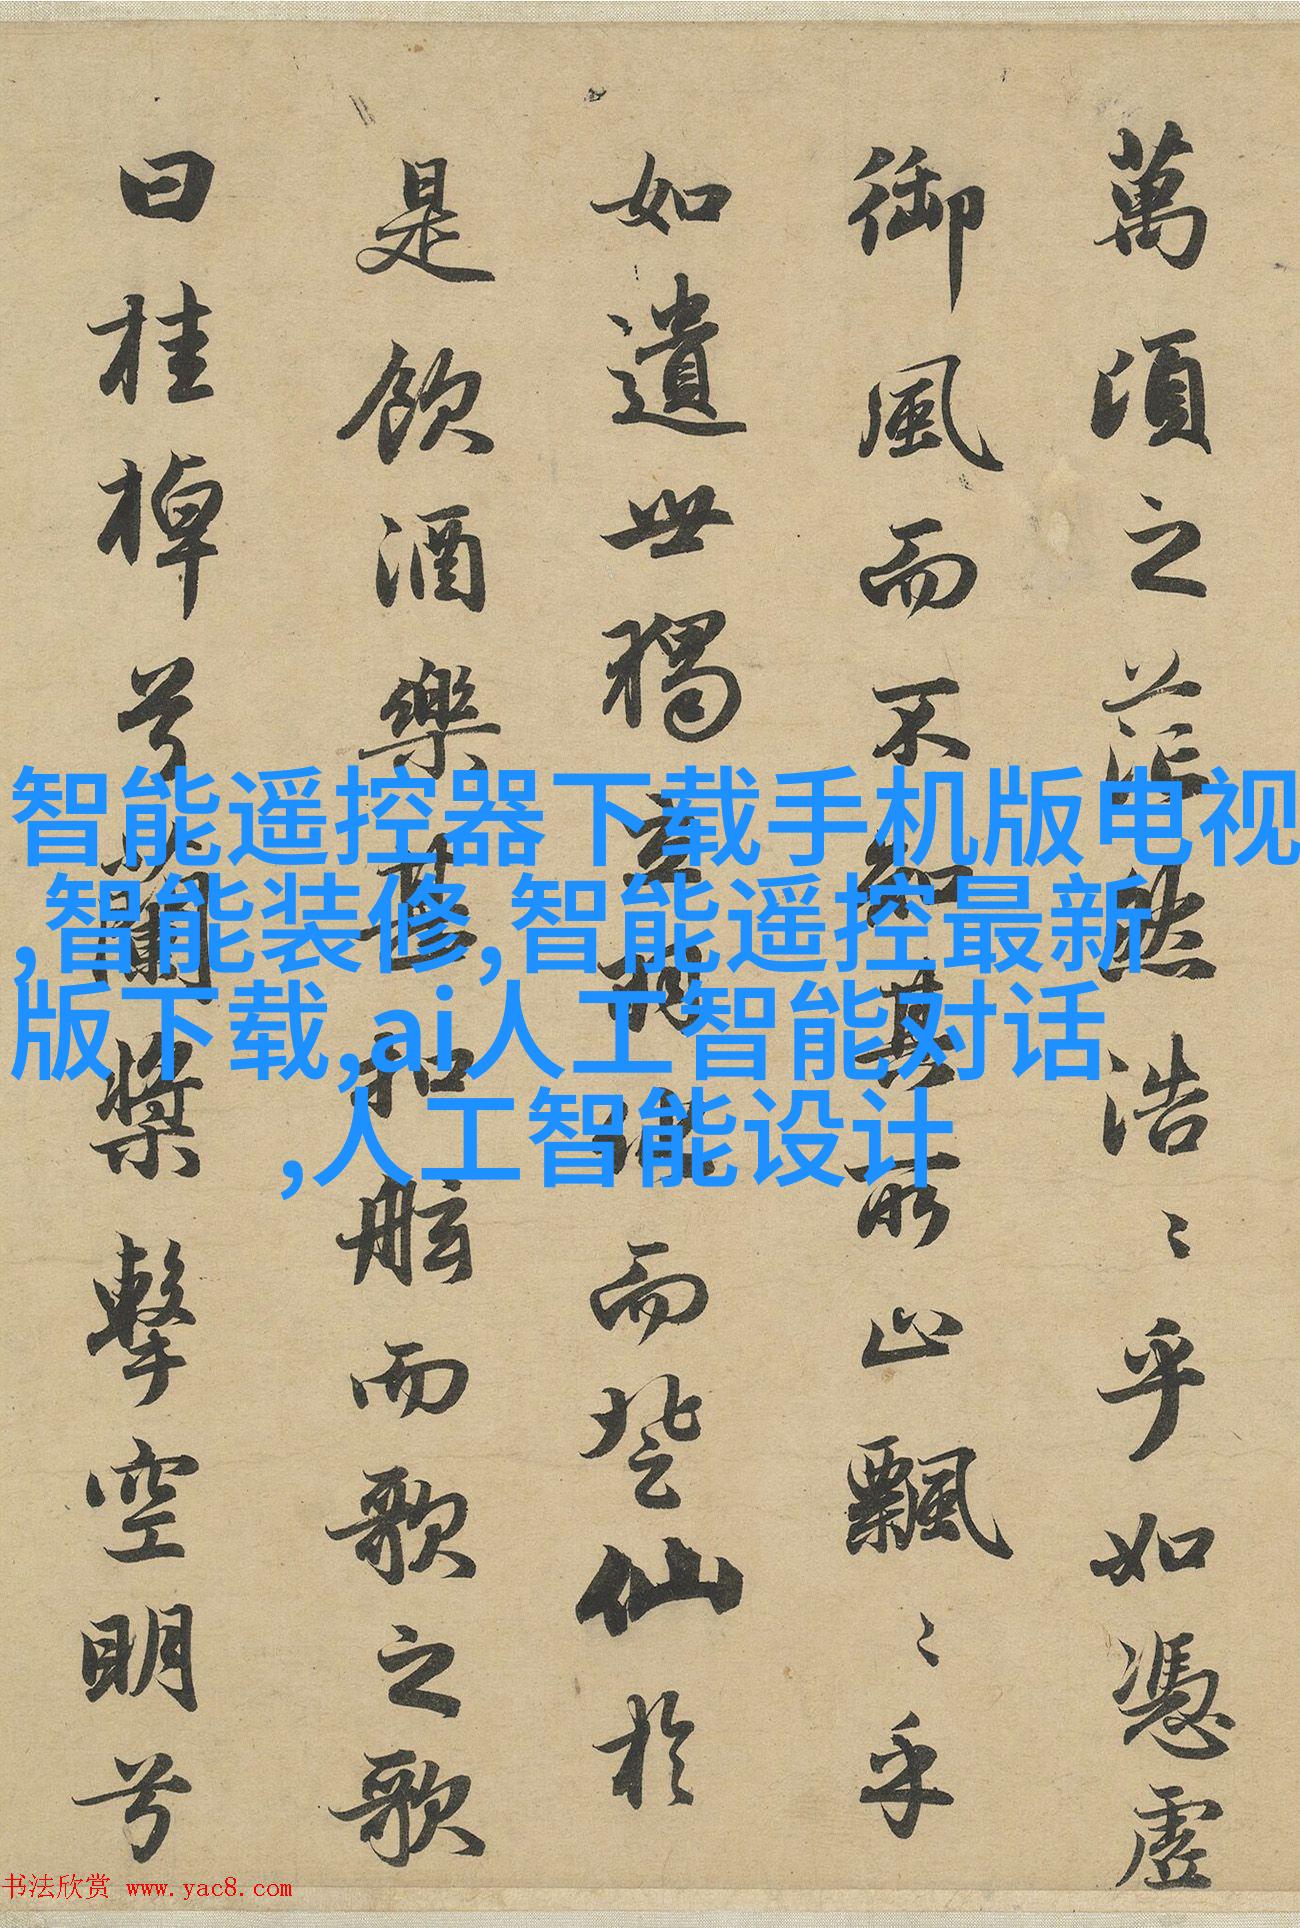 萬頃之茫然浩〻乎如憑虛
御風而不知其所止飄〻乎
如遺世獨立羽化而登仙於
是飲酒樂甚扣舷而歌之歌
曰桂棹兮蘭槳擊空明兮
智能遥控器下载手机版电视
,智能装修,智能遥控最新
版下载,ai人工智能对话
,人工智能设计
书法欣赏 www.yac8.com